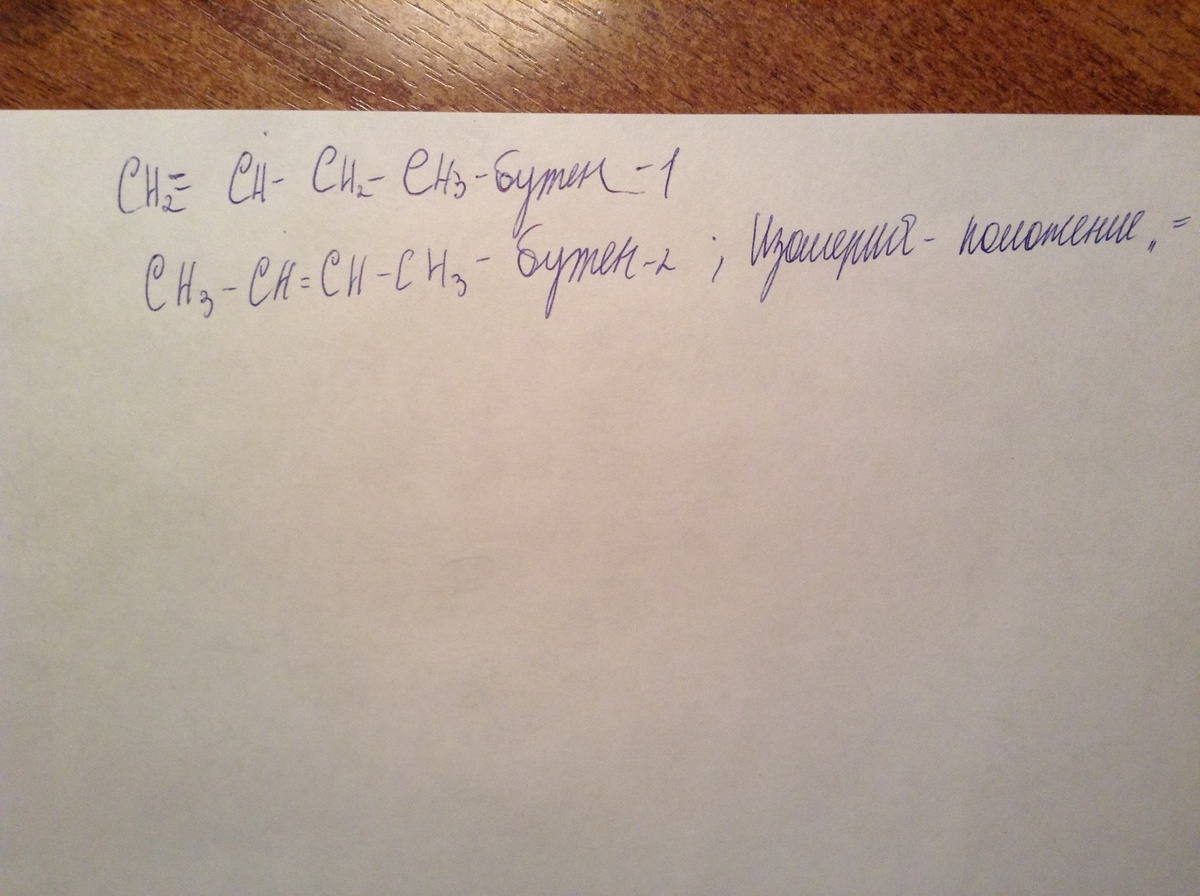 CH₂= CH- CH₂- CH₃-бутен-1
CH₃-CH=CH-CH₃- бутен-2 ; Изомерия- положение „=